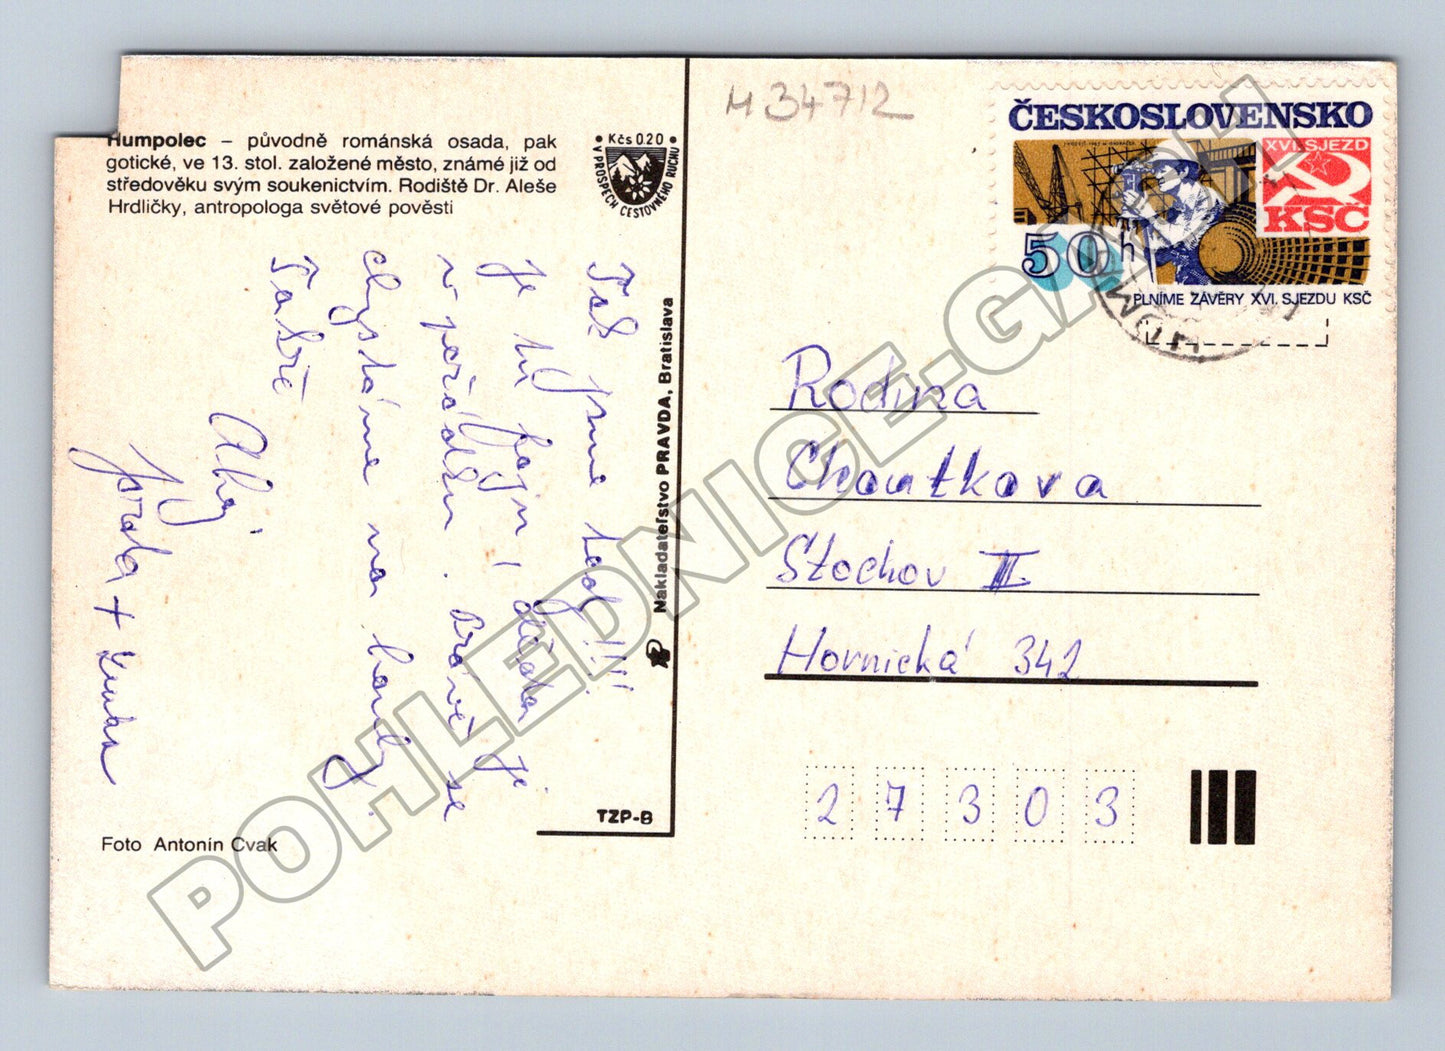 Humpolec – původně románská osada, pak
gotické, ve 13. stol. založené město, známé již od
středověku svým soukenictvím. Rodiště Dr. Aleše
Hrdličky, antropologa světové pověsti
Kčs 0.20
V PROSPĚCH CESTOVNÉHO RUCHU
Tak jsme tady!!!!
Je tu fajn i děda je
v pořádku. Právě se
chystáme na houby.
Ahoj
Foto Antonín Cvak
TZP-8
Nakladateľstvo PRAVDA, Bratislava
M 34712
ČESKOSLOVENSKO
XVI. SJEZD
KSČ
50 h
PLNÍME ZÁVĚRY XVI. SJEZDU KSČ
Rodina
Choutkova
Stochov II
Hornická 342
27303
POHLEDNICE-GA